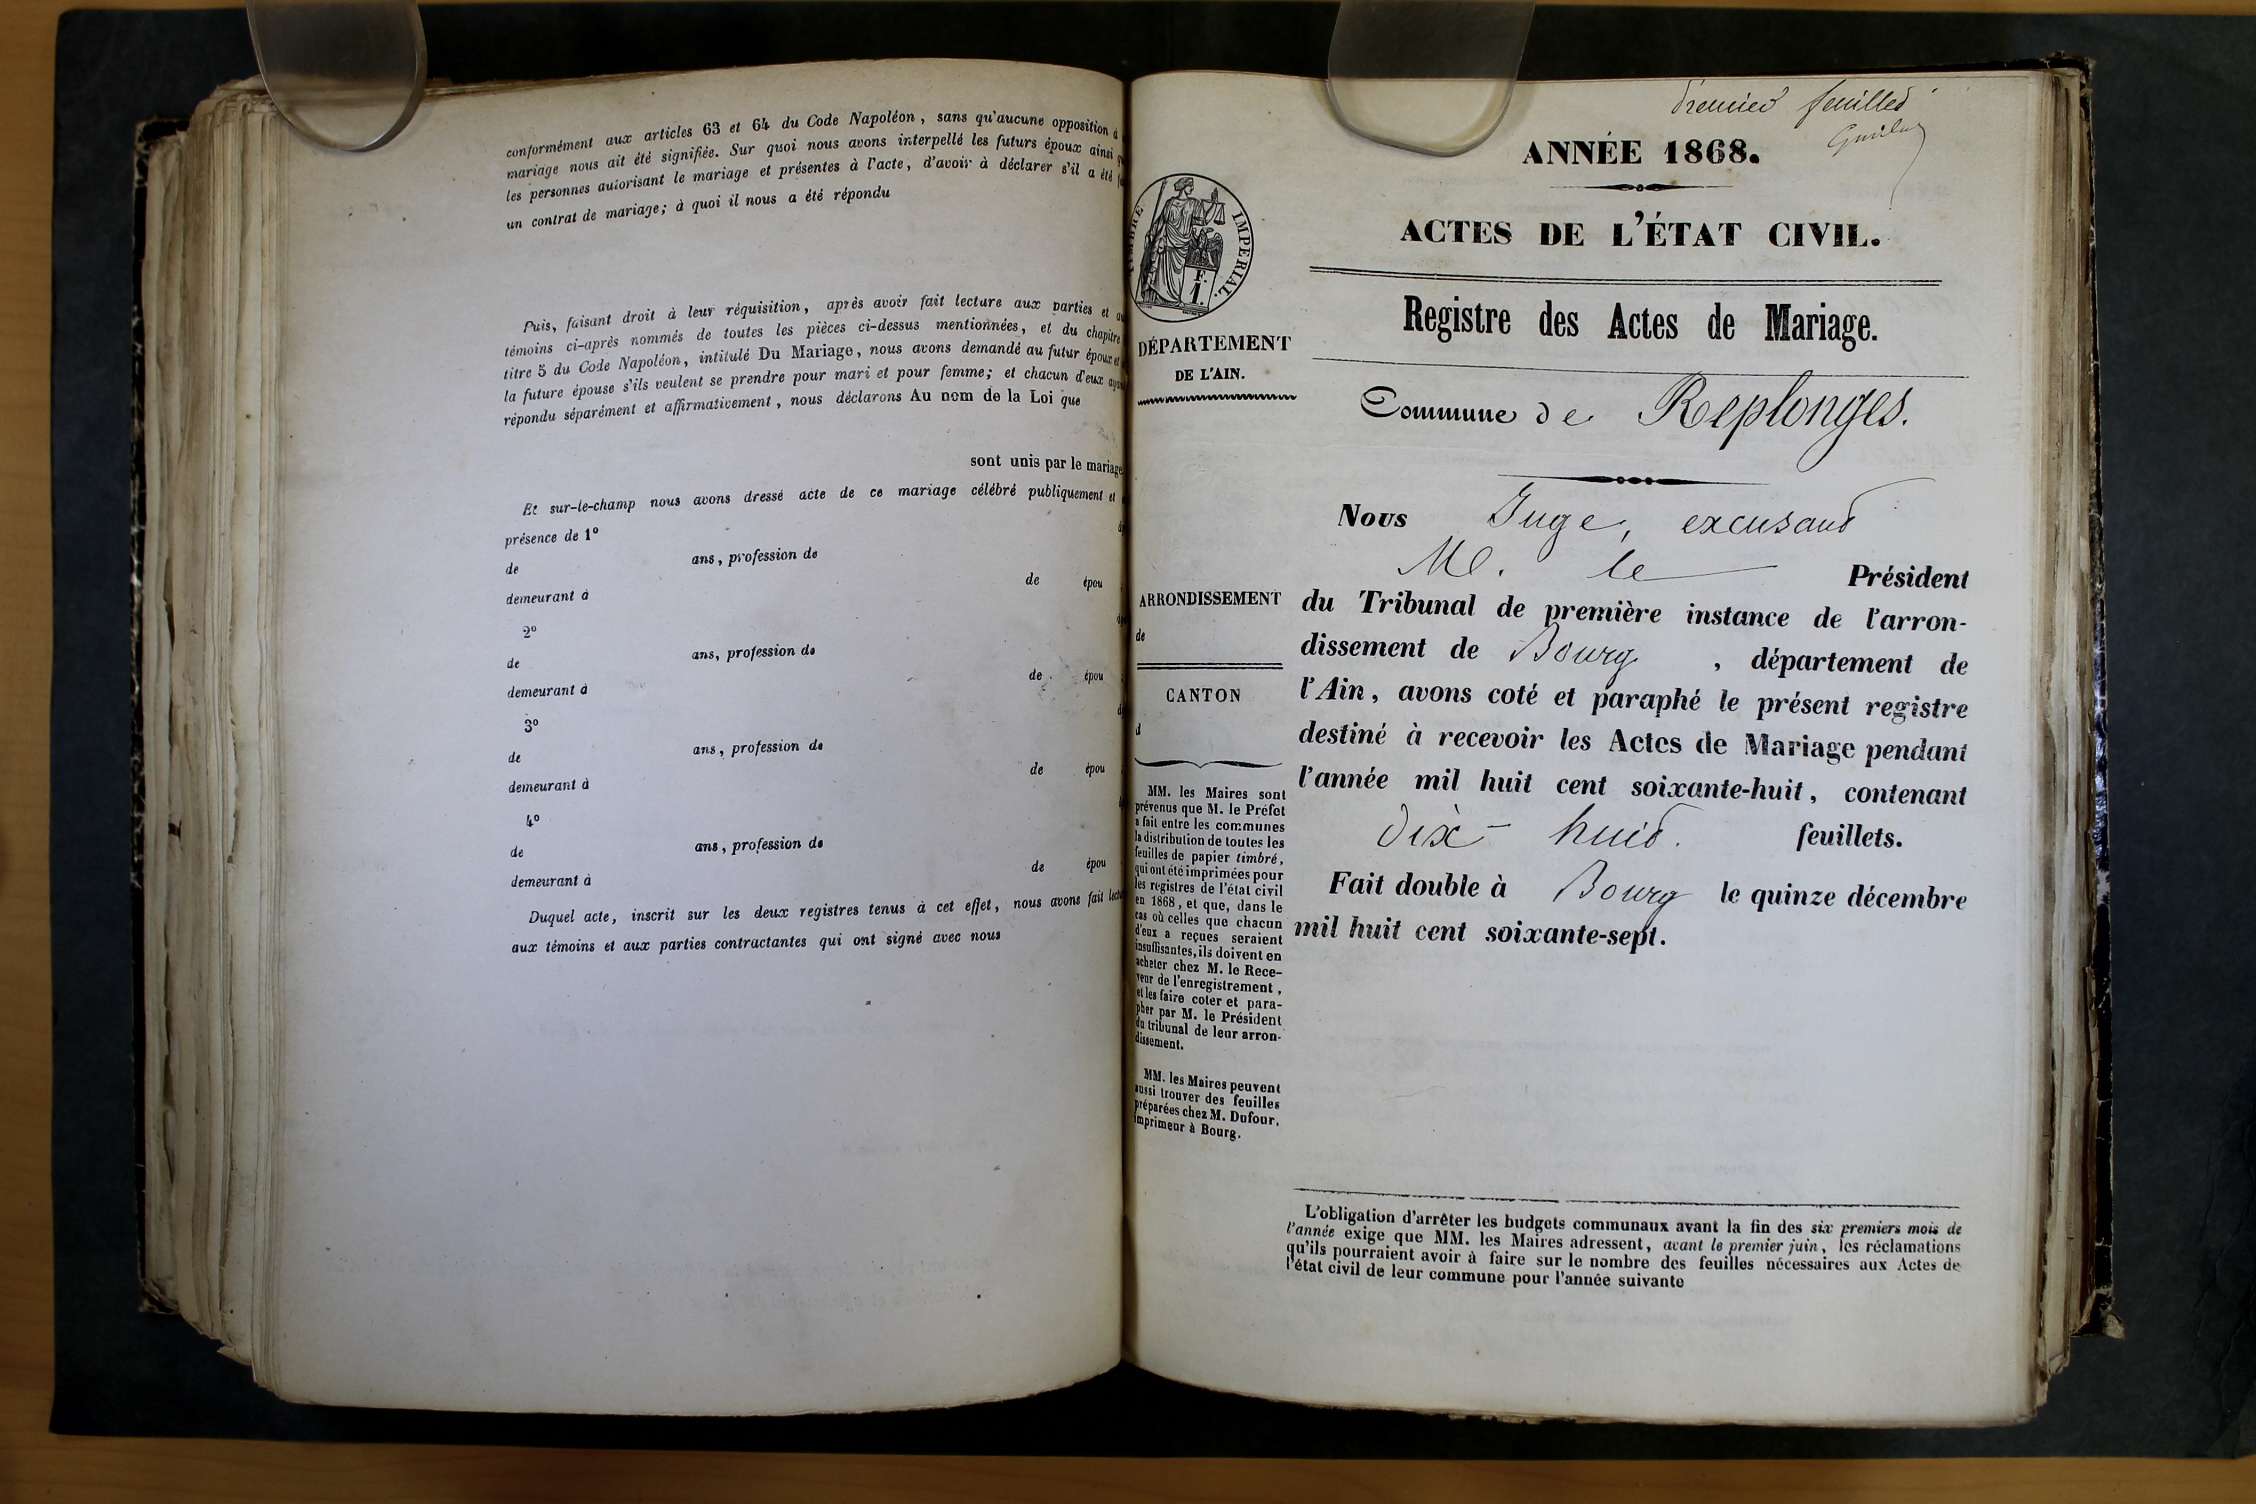 conformément aux articles 63 et 64 du Code Napoléon, sans qu'aucune opposition à
mariage nous ait été signifiée. Sur quoi nous avons interpellé les futurs époux ainsi
les personnes autorisant le mariage et présentes à l'acte, d'avoir à déclarer s'il a été
un contrat de mariage; à quoi il nous a été répondu
Puis, faisant droit à leur réquisition, après avoir fait lecture aux parties et
témoins ci-après nommés de toutes les pièces ci-dessus mentionnées, et du chapitre
titre 5 du Code Napoléon, intitulé Du Mariage, nous avons demandé au futur époux et
la future épouse s'ils veulent se prendre pour mari et pour femme; et chacun d'eux
répondu séparément et affirmativement, nous déclarons Au nom de la Loi que
sont unis par le mariage
Et sur-le-champ nous avons dressé acte de ce mariage célébré publiquement et
présence de 1º
de ans, profession de
demeurant à de épou
2º
de ans, profession de
demeurant à de épou
3º
de ans, profession de
demeurant à de épou
4º
de ans, profession de
demeurant à de épou
Duquel acte, inscrit sur les deux registres tenus à cet effet, nous avons fait
aux témoins et aux parties contractantes qui ont signé avec nous
Premier feuillet
ANNÉE 1868.
ACTES DE L'ÉTAT CIVIL.
Registre des Actes de Mariage.
Commune de Replonges.
TIMBRE IMPERIAL.
F.
1.
DÉPARTEMENT
DE L'AIN.
ARRONDISSEMENT
de
CANTON
d
MM. les Maires sont
prévenus que M. le Préfet
a fait entre les communes
la distribution de toutes les
feuilles de papier timbré,
qui ont été imprimées pour
les registres de l'état civil
en 1868, et que, dans le
cas où celles que chacun
d'eux a reçues seraient
insuffisantes, ils doivent en
acheter chez M. le Rece-
veur de l'enregistrement,
et les faire coter et para-
pher par M. le Président
du tribunal de leur arron-
dissement.
MM. les Maires peuvent
aussi trouver des feuilles
préparées chez M. Dufour,
imprimeur à Bourg.
Nous Juge, excusant
M. le Président
du Tribunal de première instance de l'arron-
dissement de Bourg, département de
l'Ain, avons coté et paraphé le présent registre
destiné à recevoir les Actes de Mariage pendant
l'année mil huit cent soixante-huit, contenant
dix-huit. feuillets.
Fait double à Bourg le quinze décembre
mil huit cent soixante-sept.
L'obligation d'arrêter les budgets communaux avant la fin des six premiers mois de
l'année exige que MM. les Maires adressent, avant le premier juin, les réclamations
qu'ils pourraient avoir à faire sur le nombre des feuilles nécessaires aux Actes de
l'état civil de leur commune pour l'année suivante